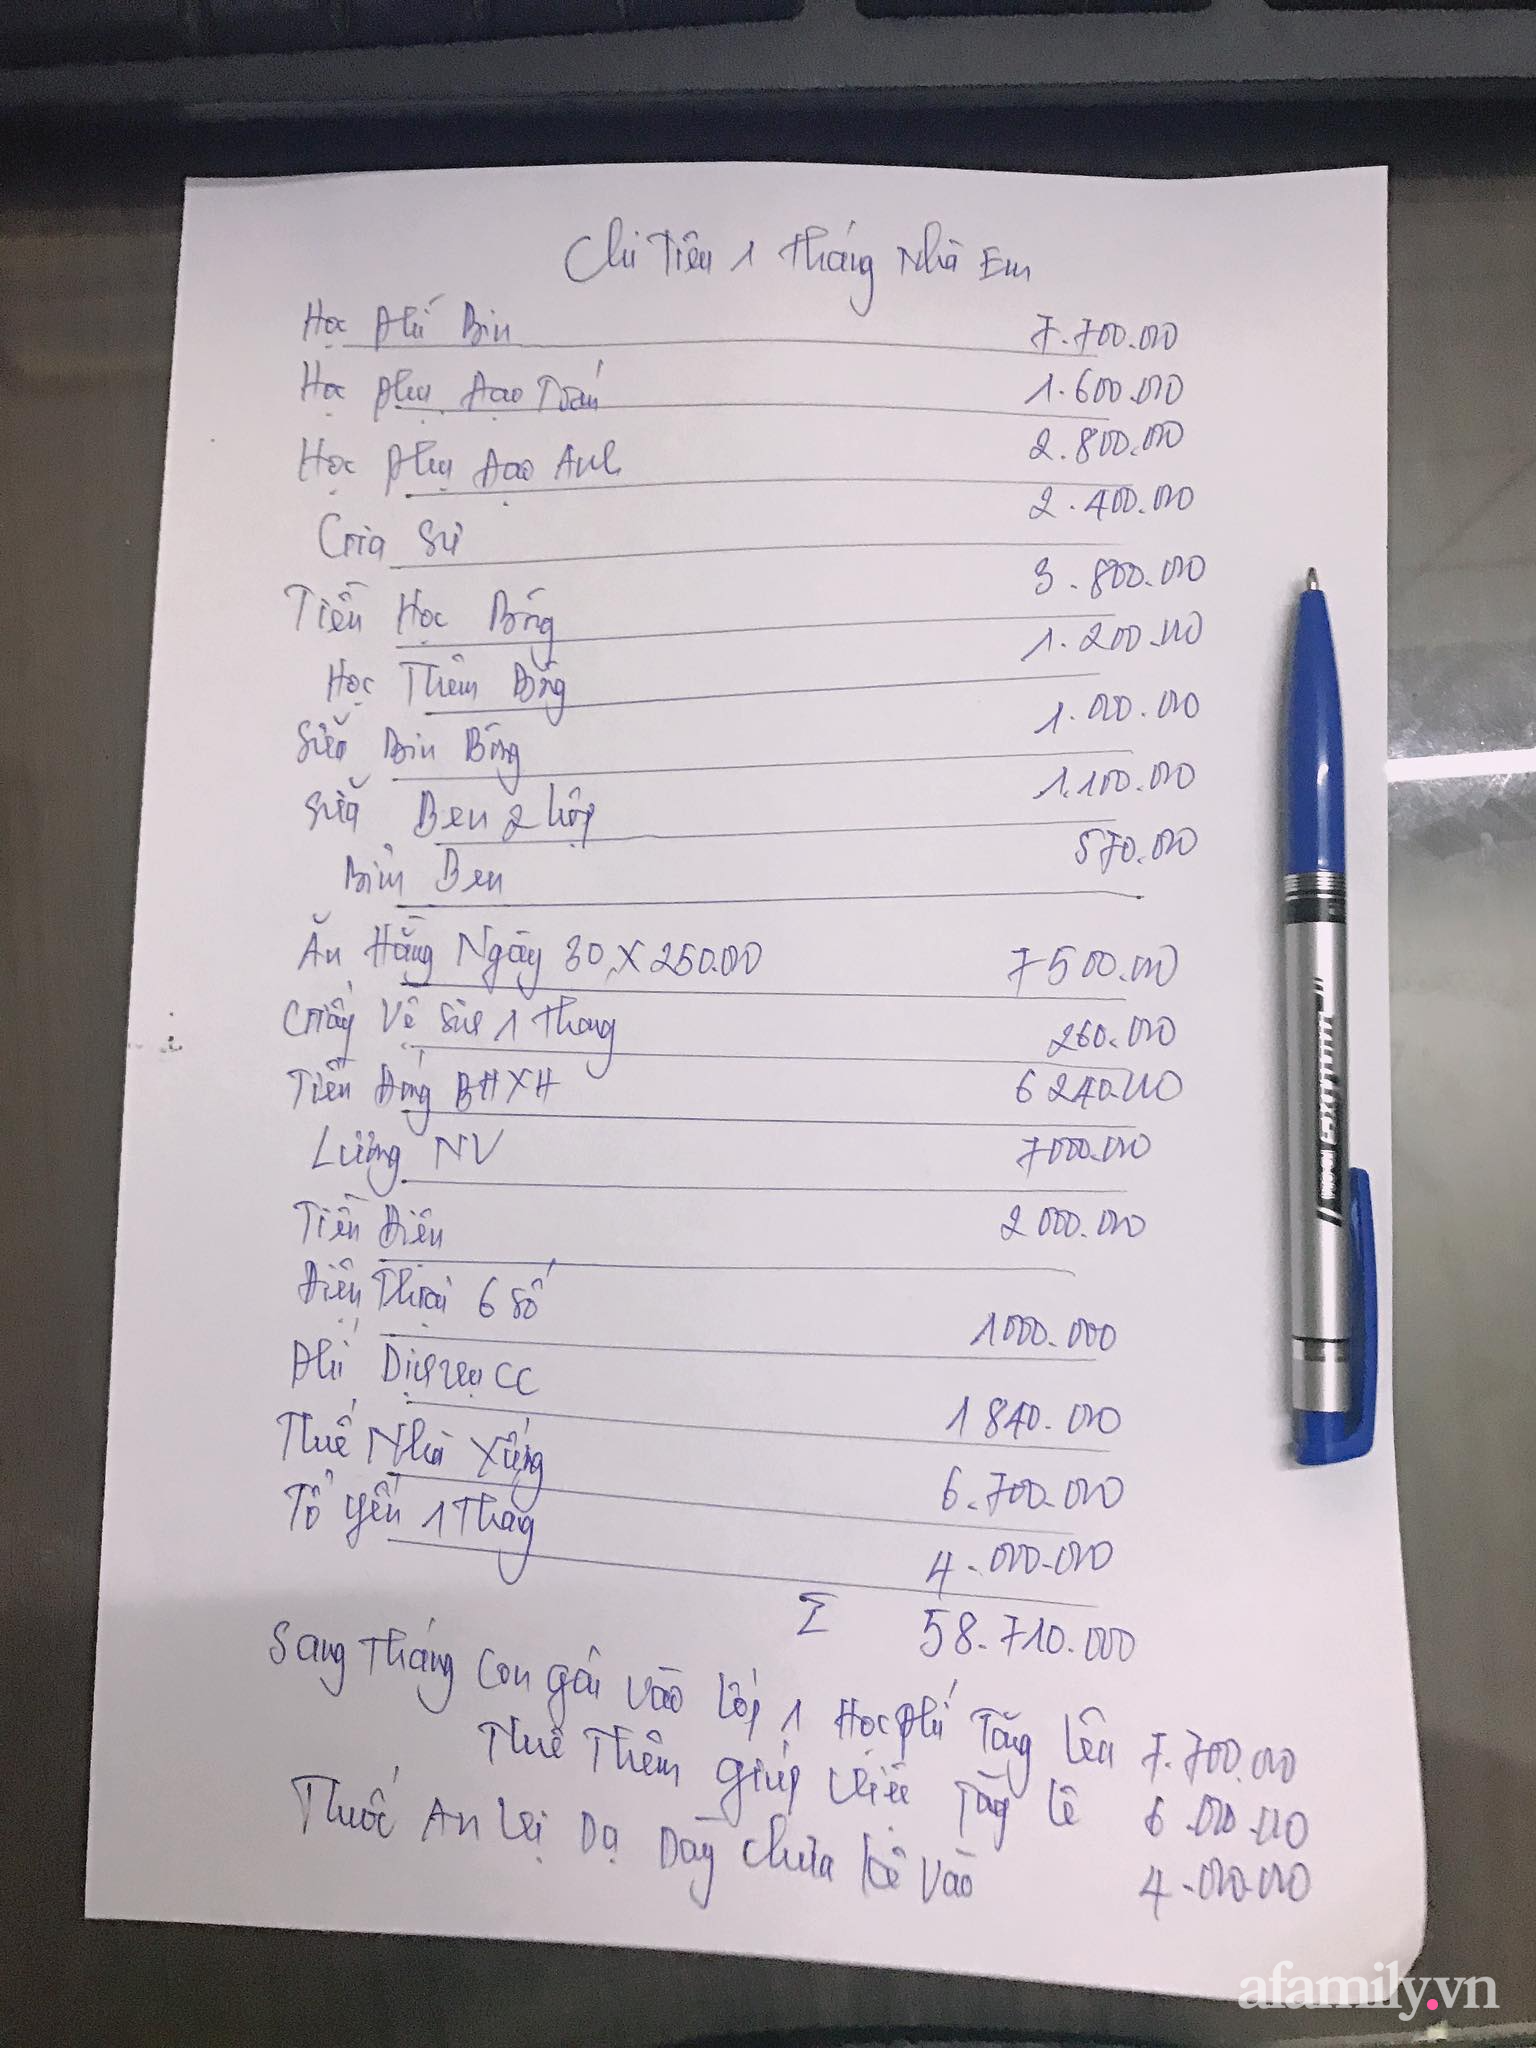 Chi Tiêu 1 Tháng Nhà Em
Học Phí Bin 7.700.000
Học Phụ Đạo Toán 1.600.000
Học Phụ Đạo Anh 2.800.000
Gia Sư 2.400.000
Tiền Học Bống 3.800.000
Học Thêm Bống 1.200.000
Sữa Bin Bống 1.000.000
Sữa Ben 2 hộp 1.100.000
Bỉm Ben 570.000
Ăn Hằng Ngày 30 X 250.000 7500.000
Giấy Vệ Sinh 1 Thang 260.000
Tiền Đóng BHXH 6240.000
Lương NV 7000.000
Tiền Điện 2000.000
Điện Thoại 6 Số 1000.000
Phí Dịch vụ CC 1840.000
Thuế Nhà Xưởng 6.700.000
Tổ Yến 1 Thang 4.000.000
Σ 58.710.000
Sang Tháng Con gái Vào Lớp 1 Học Phí Tăng Lên 7.700.000
Thuê Thêm giúp việc Tăng lê 6.000.000
Thuốc An Vị Dạ Dày Chưa Kê Vào 4.000.000
Gxmm
afamily.vn